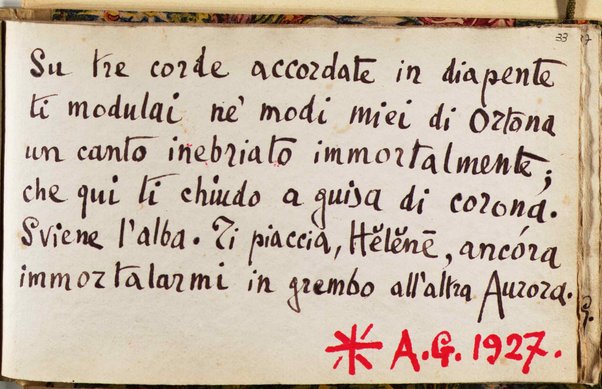 33 17
Su tre corde accordate in diapente
ti modulai ne' modi miei di Ortona
un canto inebriato immortalmente;
che qui ti chiudo a guisa di corona.
Sviene l'alba. Ti piaccia, Hĕlĕnē, ancóra
immortalarmi in grembo all'altra Aurora.
A.G. 1927.